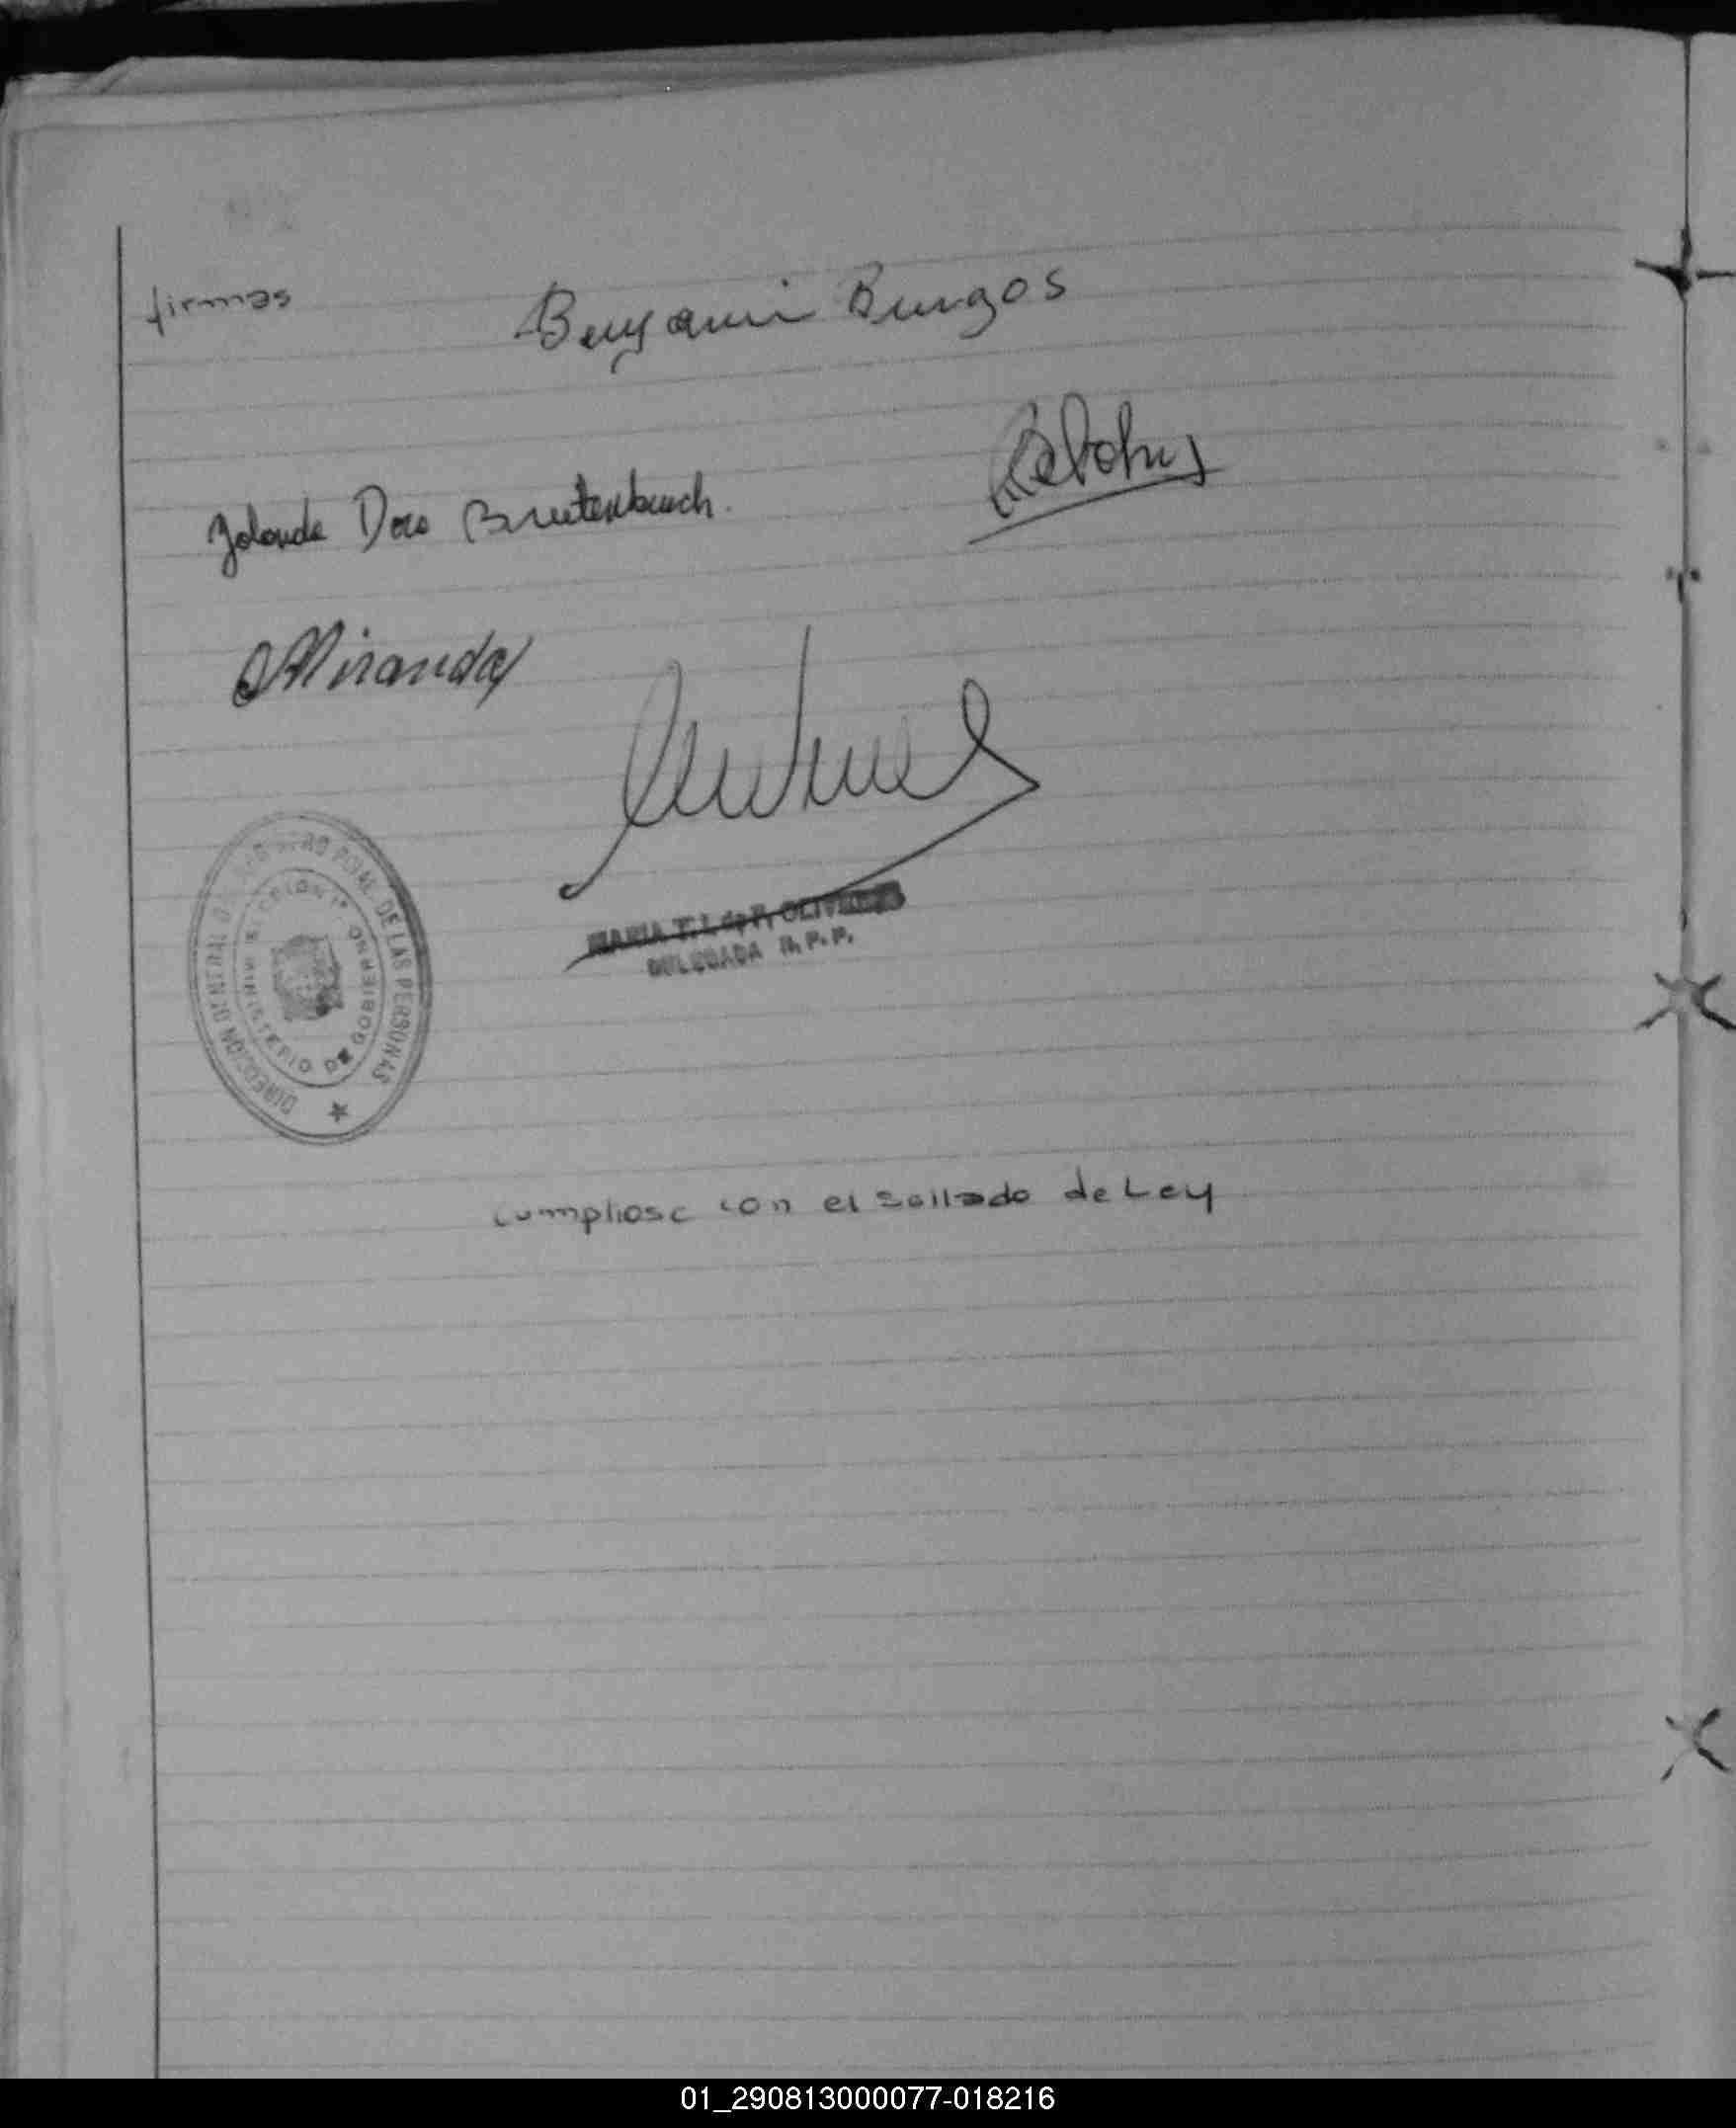 firmas
Benjamin Burgos
Yolanda Dora Breitenbuech.
Miranda
MARIA T. L de P. OLIVERA
DELEGADA R. P. P.
DIRECCION GENERAL DEL REGISTRO POTAL DE LAS PERSONAS
MINISTERIO DE GOBIERNO
cumpliose con el sellado de Ley
01_290813000077-018216